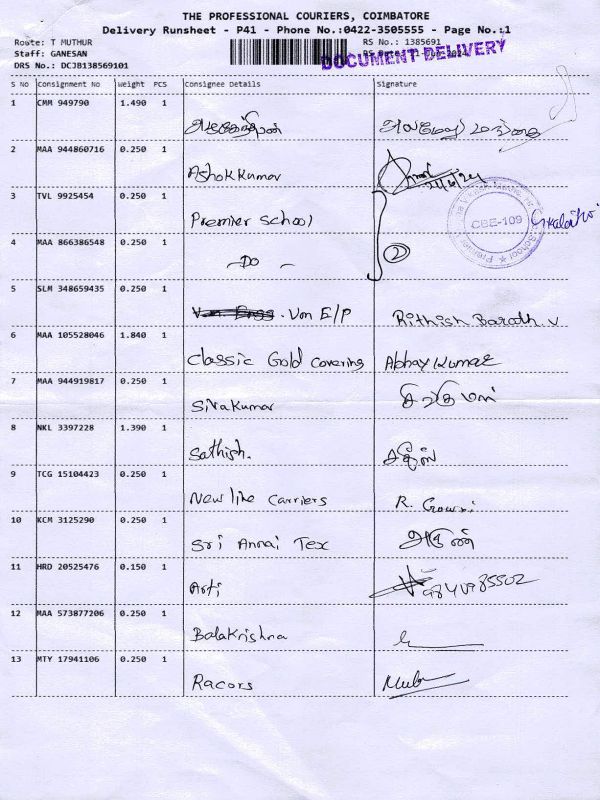 THE PROFESSIONAL COURIERS, COIMBATORE
Delivery Runsheet - P41 - Phone No.:0422-3505555 - Page No.:1
Route: T MUTHUR RS No.: 1385691
Staff: GANESAN RS Date:
DOCUMENT DELIVERY
DRS No.: DCJB138569101
S No Consignment No Weight PCS Consignee Details Signature
1 CMM 949790 1.490 1
2 MAA 944860716 0.250 1
AshokKumar
3 TVL 9925454 0.250 1
Premier School
CBE-109
4 MAA 866386548 0.250 1
- Do - 2
5 SLM 348659435 0.250 1
Von E/P Rithish Barath. V
6 MAA 105528046 1.840 1
Classic Gold Covering Abhay Kumar
7 MAA 944919817 0.250 1
Sivakumar சிவகுமார்
8 NKL 3397228 1.390 1
Sathish. சதீஸ்
9 TCG 15104423 0.250 1
New line Carriers R. Gowri
10 KCM 3125290 0.250 1
Sri Annai Tex அருண்
11 HRD 20525476 0.150 1
Arti
12 MAA 573877206 0.250 1
Balakrishna
13 MTY 17941106 0.250 1
Racors